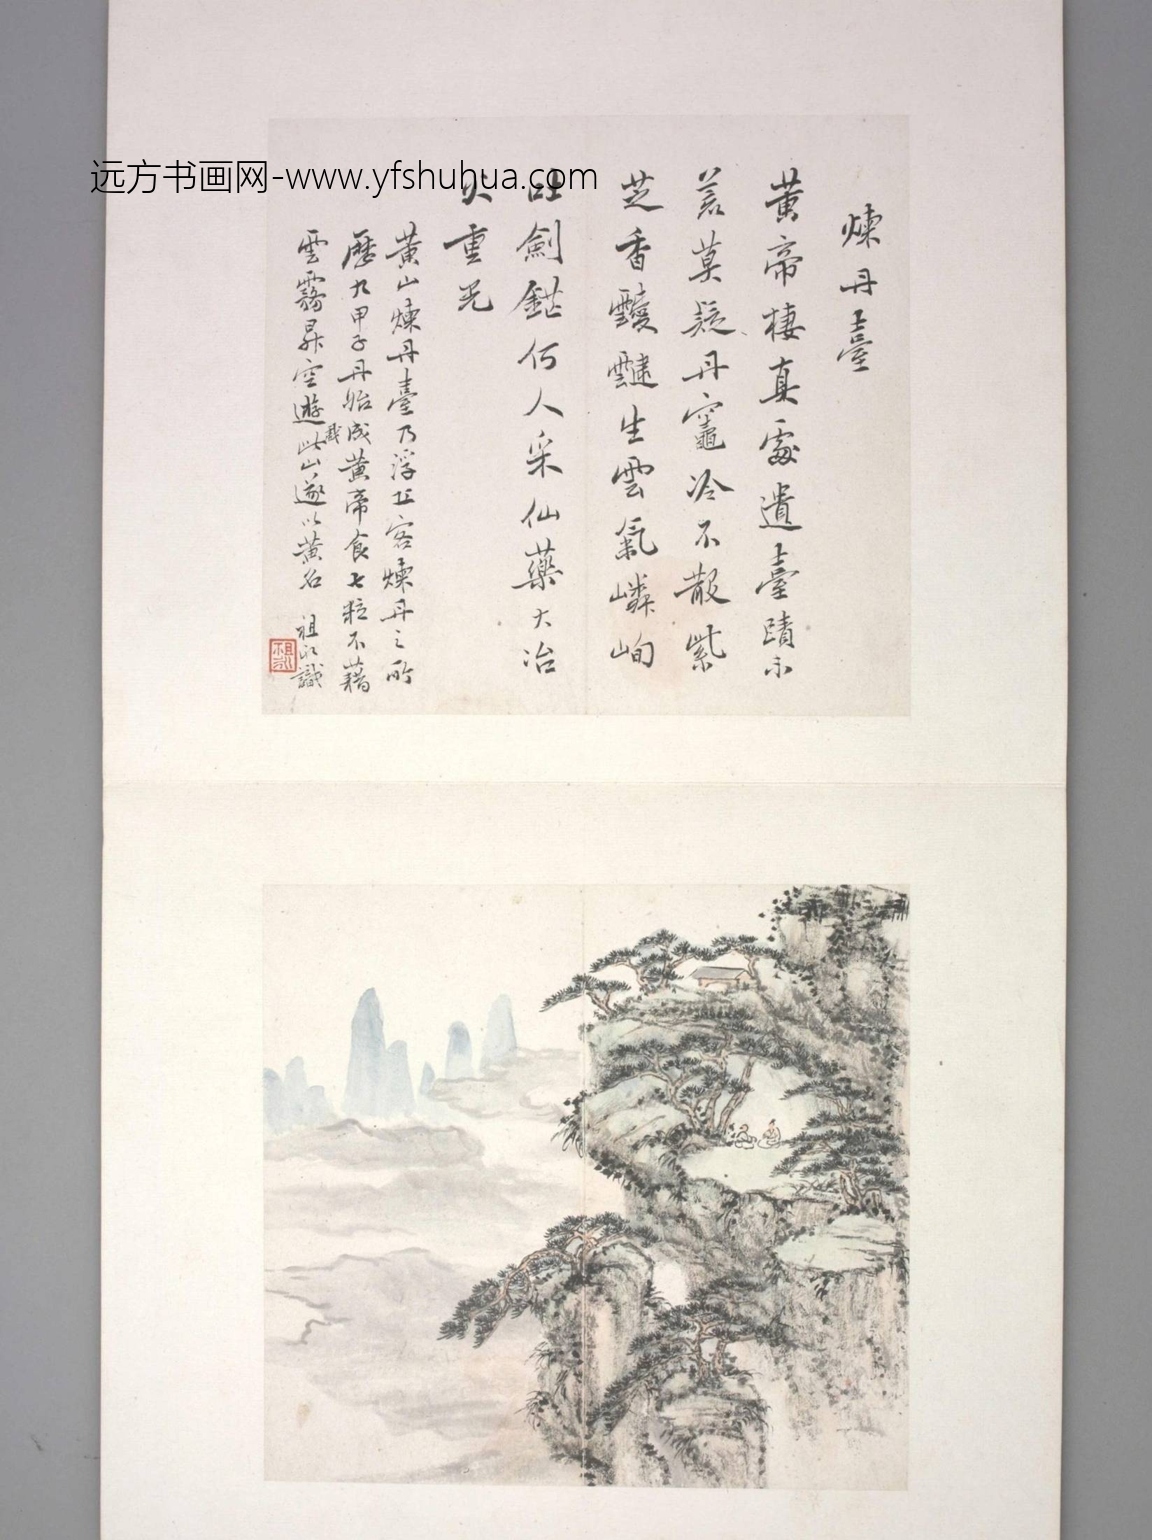 远方书画网-www.yfshuhua.com
煉丹臺
黄帝棲真處遺臺蹟不
荒莫疑丹竈冷不散紫
芝香靉靆生雲氣嶙峋
吐劍鋩何人采仙藥大冶
火重光
黄山煉丹臺乃浮丘客煉丹之所
歷九甲子丹始成黄帝食七粒不藉
雲霧昇空遊戲此山遂以黄名 祖
識